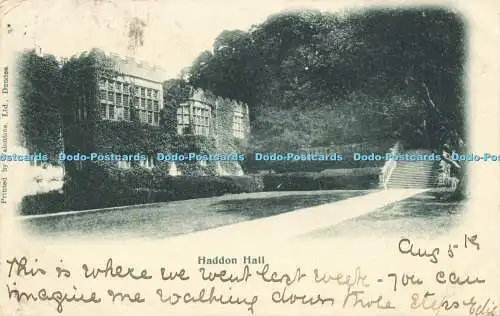 Printed by Valentines, Ltd., Dundee
Dodo-Postcards Dodo-Postcards Dodo-Postcards Dodo-Postcards Dodo-Postcards
Haddon Hall
Aug 5th
This is where we went last week - you can
imagine me walking down those steps Edie